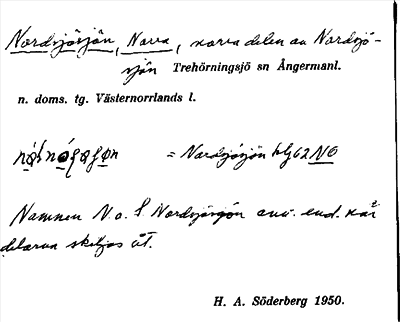 Nordsjösjön, Norra, norra delen av Nordsjö-
sjön Trehörningsjö sn Ångermanl.
n. doms. tg. Västernorrlands l.
= Nordsjösjön blj 62 NO
Namnen N. o. S. Nordsjösjön anv. end. när
delarna skiljas åt.
H. A. Söderberg 1950.